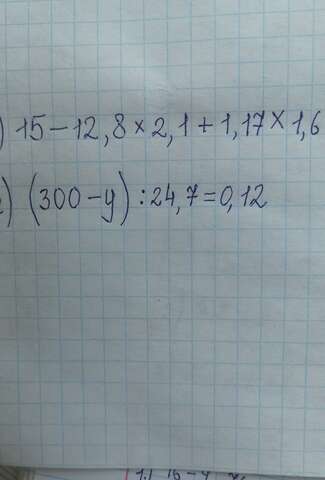 ) 15-12,8×2,1+1,17×1,6
) (300-y):24,7=0,12